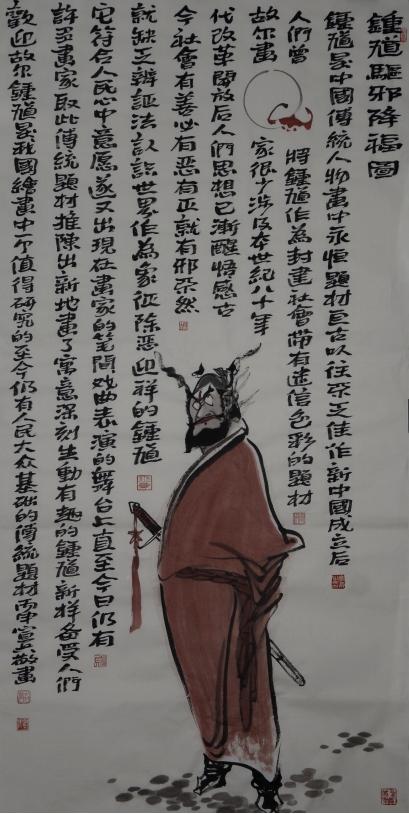 鍾馗驅邪降福圖
鍾馗是中國傳統人物畫中永恒題材巨古以往不乏佳作新中國成立后
人們曾 將鍾馗作為封建社會帶有迷信色彩的題材
故尔畫 家很少涉及本世紀八十年
代改革開放后人們思想已漸醒悟感古
今社會有善必有惡有正就有邪不然
就缺乏辨証法認識世界作為象征除惡迎祥的鍾馗
它符合人民心中意愿遂又出現在畫家的筆間戏曲表演的舞台上直至今日仍有
許多畫家取此傳統題材推陳出新地畫了寓意深刻生動有趣的鍾馗新样备受人們
歡迎故尔鍾馗是我國繪畫中一个值得研究的至今仍有人民大众基础的傳統題材